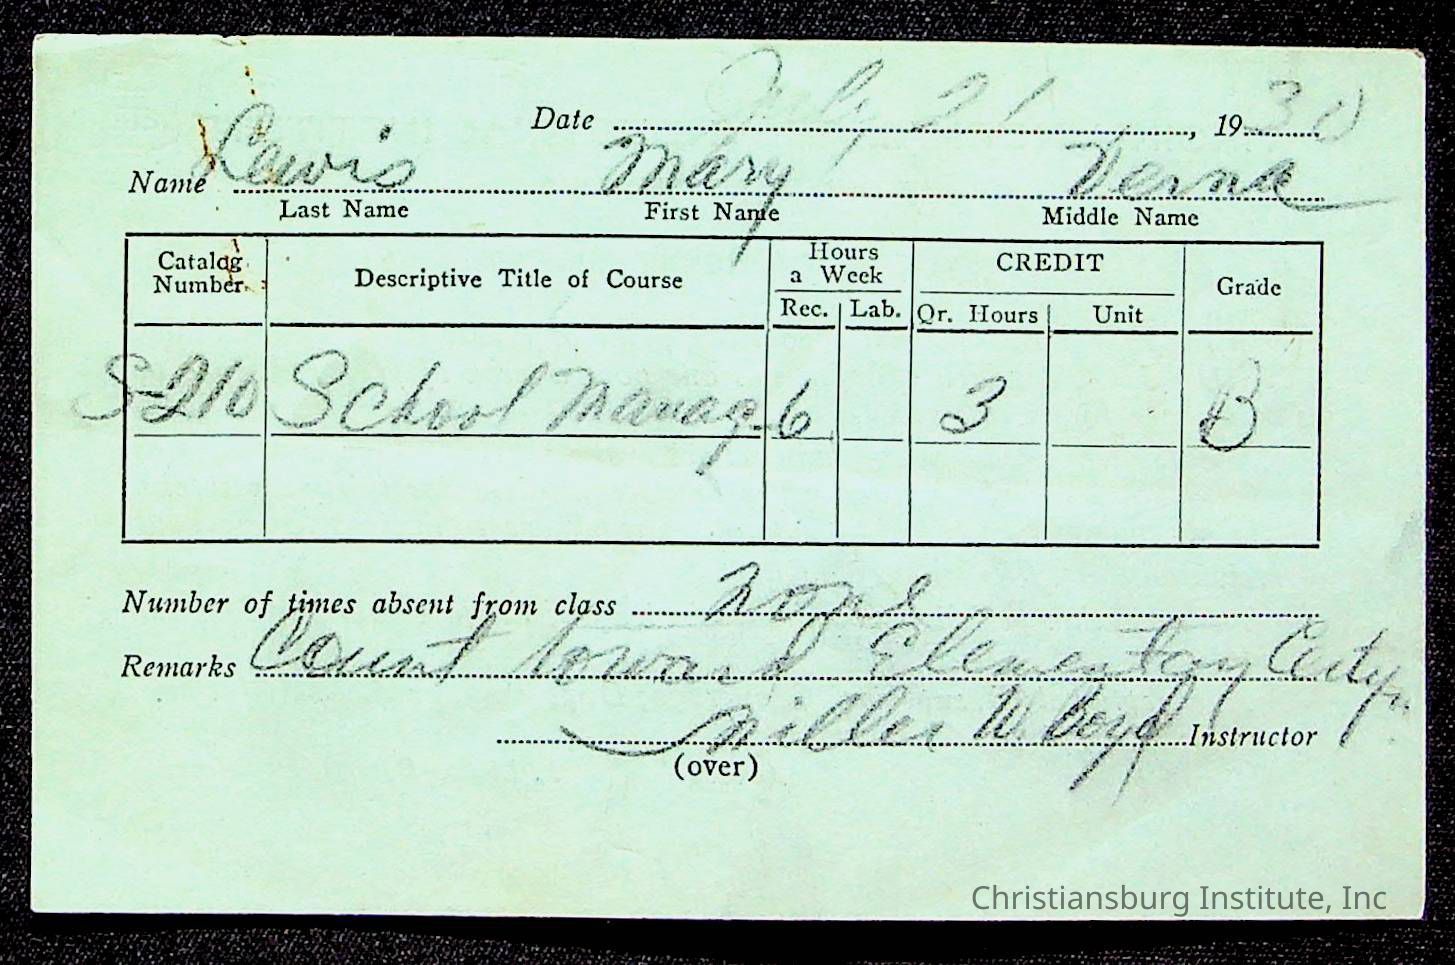 Date July 21, 1930
Name Lewis Mary Verna
Last Name First Name Middle Name
Catalog Number Descriptive Title of Course Hours a Week CREDIT Grade
Rec. Lab. Qr. Hours Unit
S-210 School Manag. 6 3 B
Number of times absent from class none
Remarks Count toward Elementary
Miller W. Boyd Instructor
(over)
Christiansburg Institute, Inc